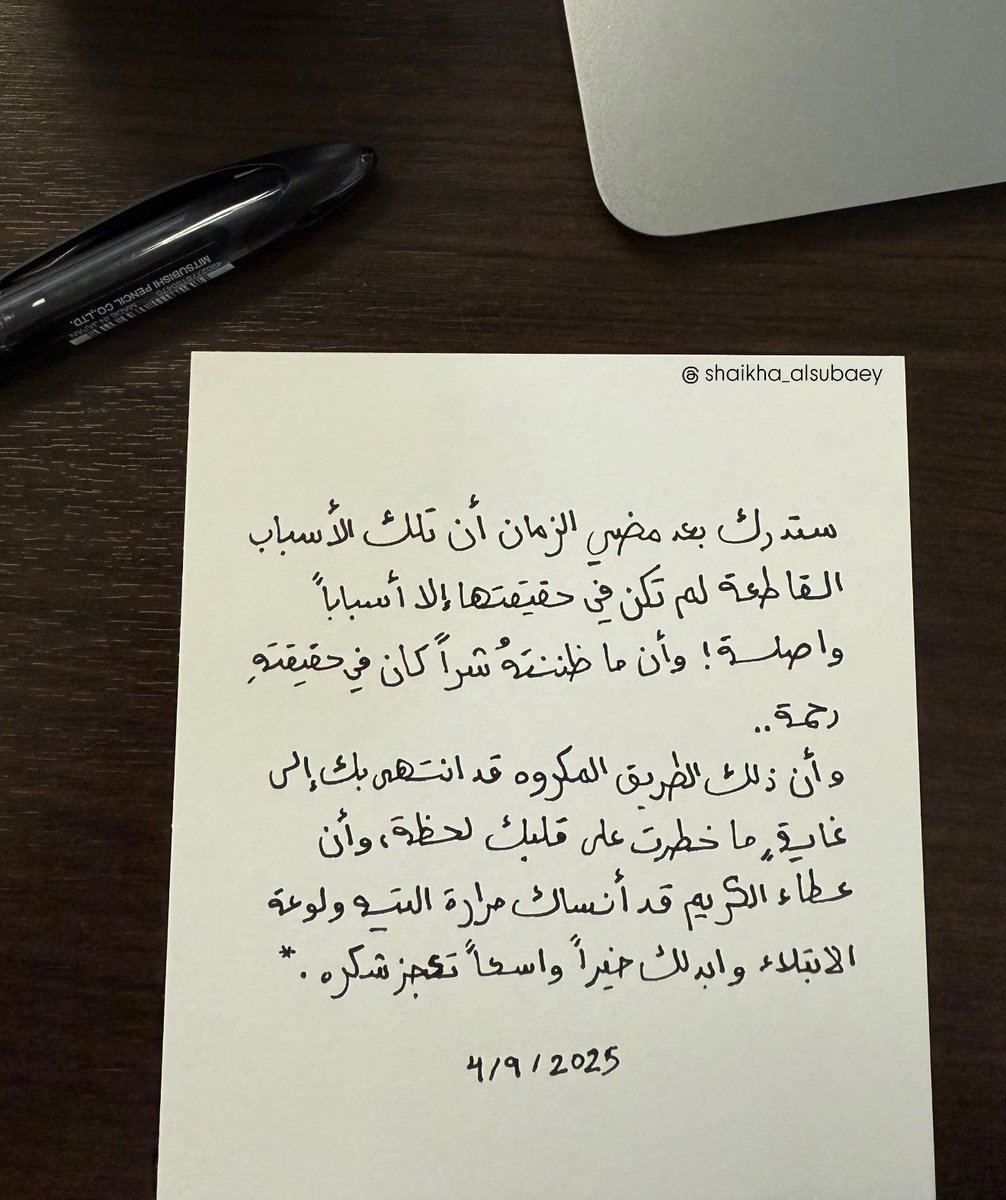 MITSUBISHI PENCIL CO.,LTD.
MADE IN JAPAN
@shaikha_alsubaey
ستدرك بعد مضي الزمان أن تلك الأسباب
القاطعة لم تكن في حقيقتها إلا أسباباً
واصلة! وأن ما ظننتهُ شراً كان في حقيقتهِ
رحمة..
وأن ذلك الطريق المكروه قد انتهى بك إلى
غايةٍ ما خطرت على قلبك لحظة، وأن
عطاء الكريم قد أنساك مرارة التيه ولوعة
الابتلاء وابدلك خيراً واسعاً تعجز شكره .*
4/9/2025